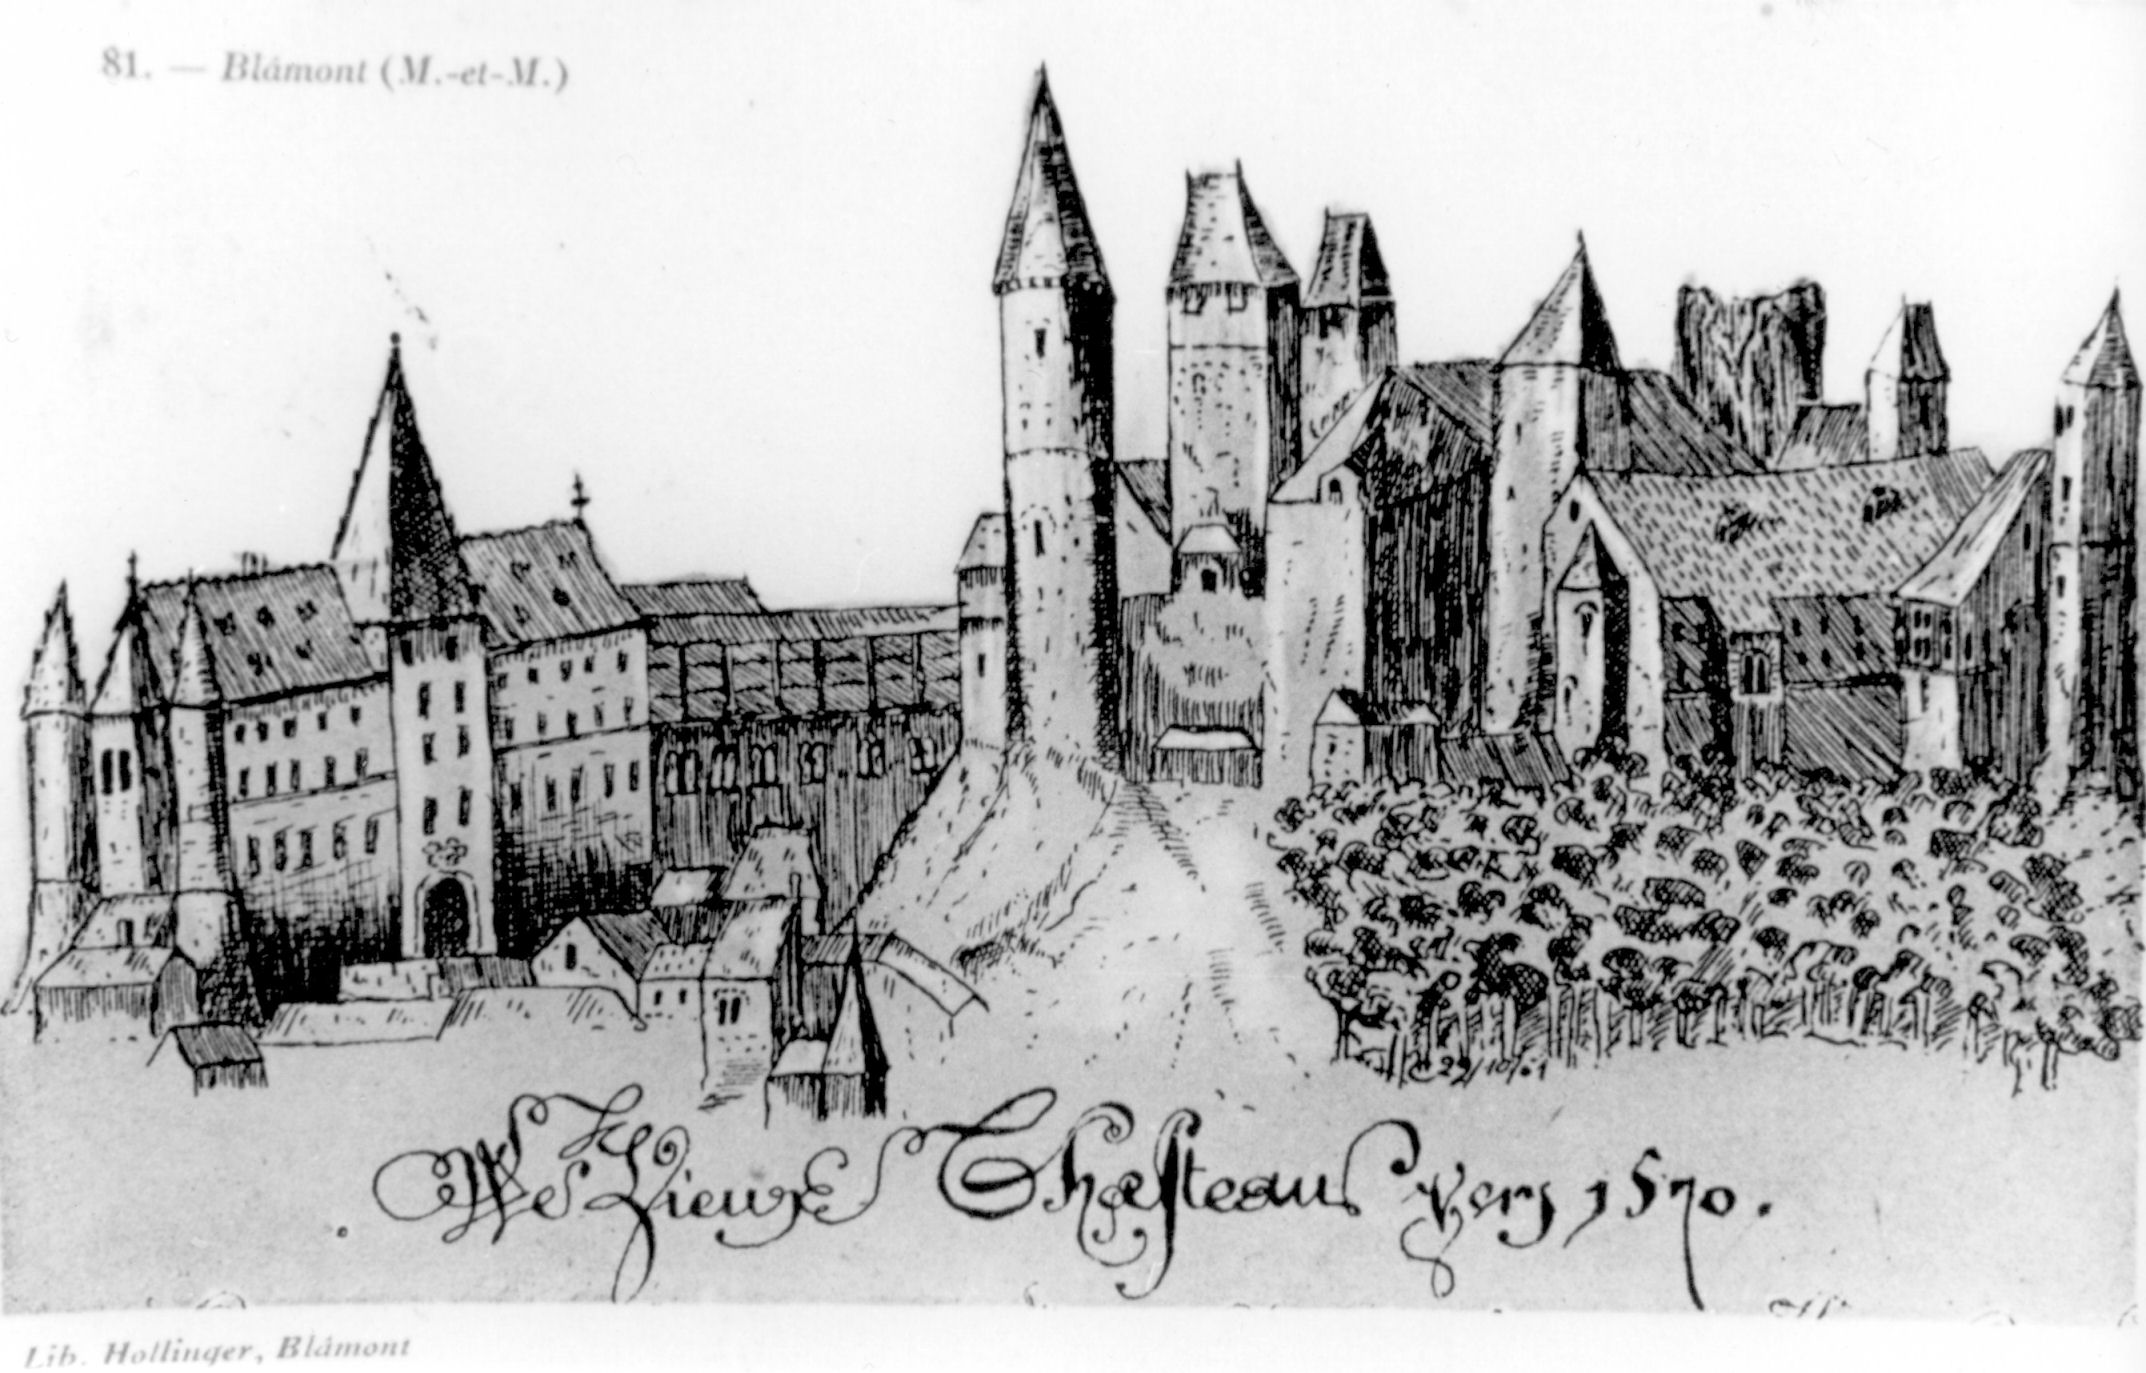 81. — Blâmont (M.-et-M.)
C 29/10.01
Le Vieux Chasteau vers 1570.
Lib. Hollinger, Blâmont